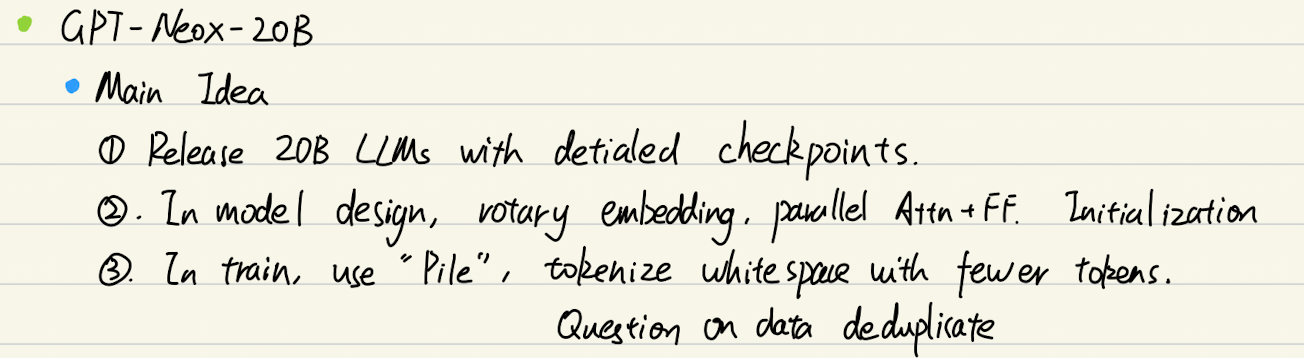 GPT-Neox-20B
Main Idea
① Release 20B LLMs with detialed checkpoints.
②. In model design, rotary embedding, parallel Attn+FF. Initialization
③. In train, use "Pile", tokenize whitespace with fewer tokens.
Question on data deduplicate